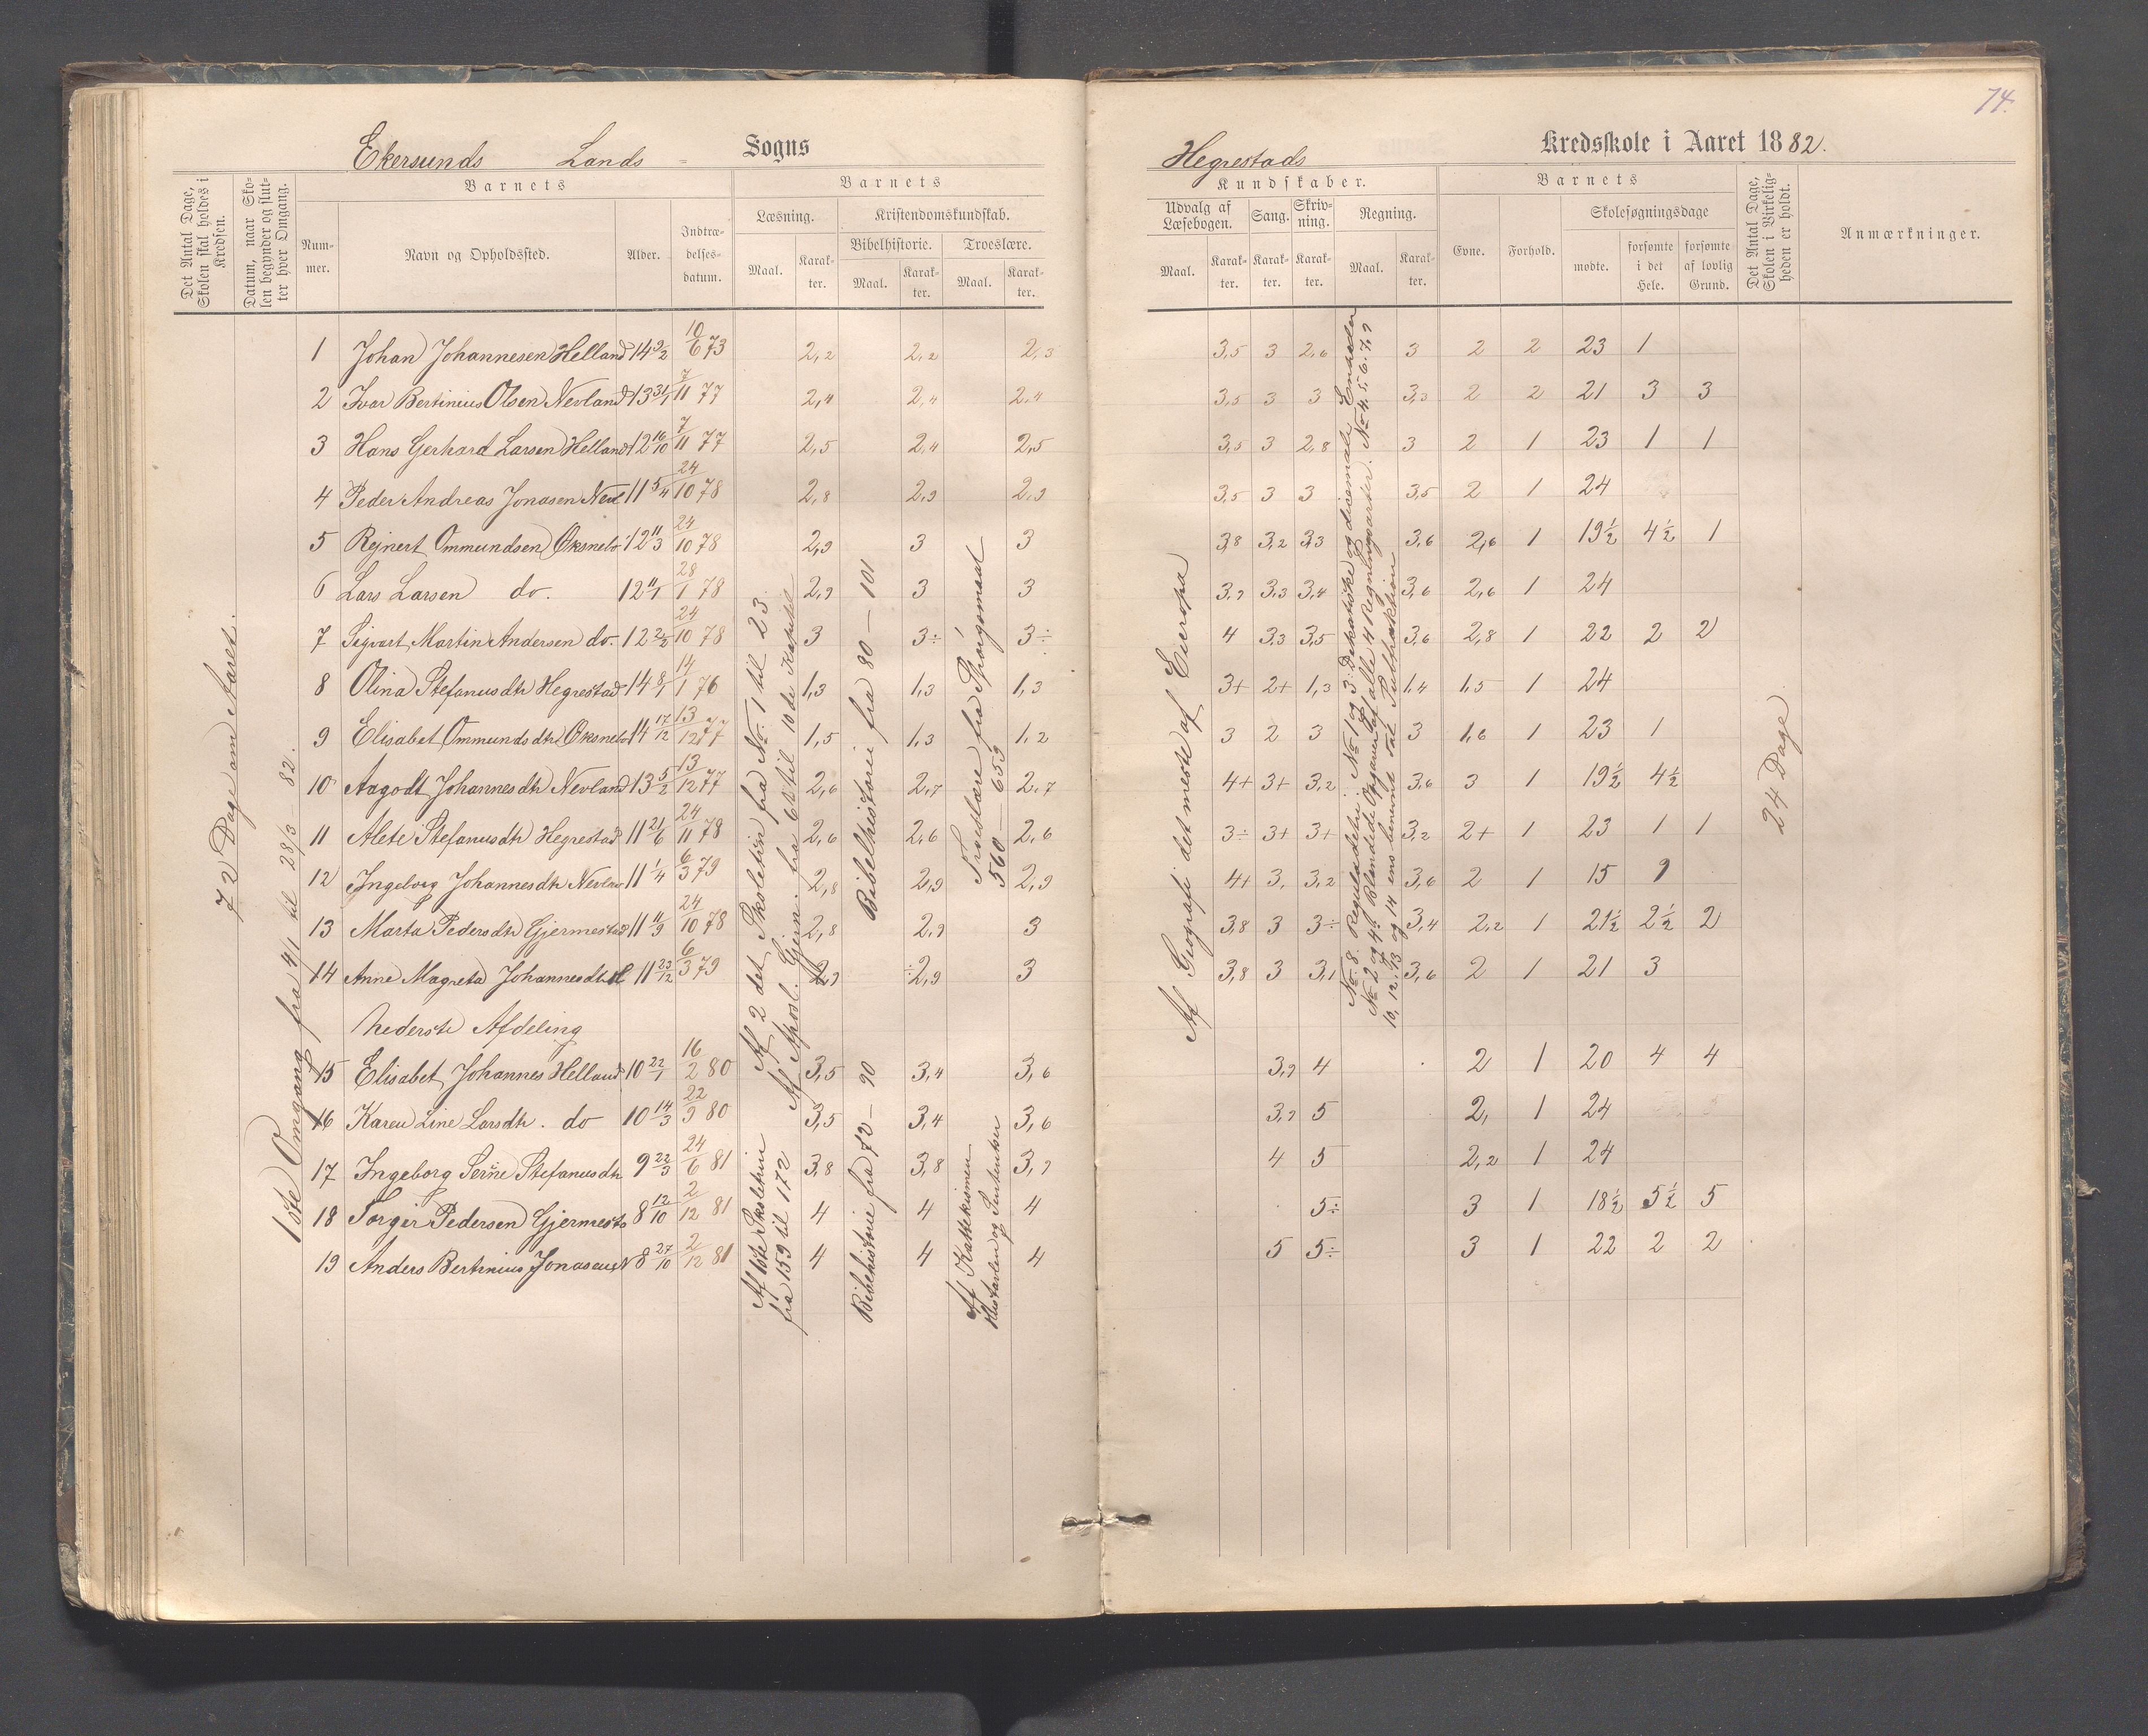 74.
Ekersunds Lands = Sogns
Hegrestads Kredsskole i Aaret 1882.
Det Antal Dage, Skolen skal holdes i Kredsen.
Datum, naar Skolen begynder og slutter hver Omgang.
Barnets
Nummer.
Navn og Opholdssted.
Alder.
Indtrædelsesdatum.
Barnets
Læsning.
Kristendomskundskab.
Bibelhistorie.
Troeslære.
Maal. Karakter. Maal. Karakter. Maal. Karakter.
Kundskaber.
Udvalg af Læsebogen. Sang. Skrivning. Regning.
Maal. Karakter. Karakter. Karakter. Maal. Karakter.
Barnets
Evne. Forhold. Skolesøgningsdage
mødte. forsømte i det Hele. forsømte af lovlig Grund.
Det Antal Dage, Skolen i Virkeligheden er holdt.
Anmærkninger.
72 Dage om Aaret.
1ste Omgang fra 4/1 til 28/3 82.
1 Johan Johannesen Helland 14 9/2 10/6 73 2,2 2,2 2,3 3,5 3 2,6 3 2 2 23 1
2 Ivar Bertinius Olsen Nevland 13 31/1 7/11 77 2,4 2,4 2,4 3,5 3 3 3,3 2 2 21 3 3
3 Hans Gerhard Larsen Helland 12 16/10 7/11 77 2,5 2,4 2,5 3,5 3 2,8 3 2 1 23 1 1
4 Peder Andreas Jonasen Nevl 11 5/4 24/10 78 2,8 2,9 2,9 3,5 3 3 3,5 2 1 24
5 Rejnert Ommundsen Øksnev 12 11/3 24/10 78 2,9 3 3 3,8 3,2 3,3 3,6 2,6 1 19½ 4½ 1
6 Lars Larsen do. 12 11/1 28/1 78 2,9 3 3 3,9 3,3 3,4 3,6 2,6 1 24
7 Sigvart Martin Andersen do. 12 2/2 24/10 78 3 3÷ 3÷ 4 3,3 3,5 3,6 2,8 1 22 2 2
8 Olina Stefanusdtr Hegrestad 14 8/1 14/1 76 1,3 1,3 1,3 3+ 2+ 1,3 1,4 1,5 1 24
9 Elisabet Ommundsdtr Øksnev 14 17/12 13/12 77 1,5 1,3 1,2 3 2 3 3 1,6 1 23 1
10 Aagodt Johannesdtr Nevland 13 5/2 13/12 77 2,6 2,7 2,7 4+ 3+ 3,2 3,6 3 1 19½ 4½
11 Alete Stefanusdtr Hegrestad 11 21/6 24/11 78 2,6 2,6 2,6 3÷ 3+ 3+ 3,2 2+ 1 23 1 1
12 Ingeborg Johannesdtr Nevland 11 1/4 6/3 79 2,8 2,9 2,9 4+ 3, 3,2 3,6 2 1 15 9
13 Marta Pedersdtr Gjermestad 11 11/9 24/10 78 2,8 2,9 3 3,8 3 3÷ 3,4 2,2 1 21½ 2½ 2
14 Anne Magreta Johannesdtr H 11 23/12 6/3 79 2,9 ÷2,9 3 3,8 3 3,1 3,6 2 1 21 3
Nederste Afdeling
15 Elisabet Johannes Helland 10 22/1 16/2 80 3,5 3,4 3,6 3,9 4 2 1 20 4 4
16 Karen Line Larsdtr. do 10 14/3 22/3 80 3,5 3,4 3,6 3,9 5 2, 1 24
17 Ingeborg Serine Stefanusdtr 9 22/3 24/6 81 3,8 3,8 3,9 4 5 2,2 1 24
18 Torger Pedersen Gjermest 8 12/10 2/12 81 4 4 4 5÷ 3 1 18½ 5½ 5
19 Anders Bertinius Jonasen N 8 27/10 2/12 81 4 4 4 5 5÷ 3 1 22 2 2
Af 2 det Skoletrin fra No. 1 til 23.
Af Apost. Gjern. fra 6te til 10de Kapitel
Bibelhistorie fra 80 – 101
Troeslære fra Spørgsmaal 560 – 653
Af 1ste Skoletrin fra 159 til 172
Bibelhistorie fra 72 – 90
Af Katekismen Hustavlen og
Af Geografi det meste af Europa
No 8. Reguladetri. No 1 og 3: Dekadiske og decimale Enheder
No 2 og 4: Blandede Opgaver af alle 4 Regningsarter. No 4. 5. 6. 7. 9
10, 12, 13 og 14 ens benevnt Tal Subtraktion
24 Dage